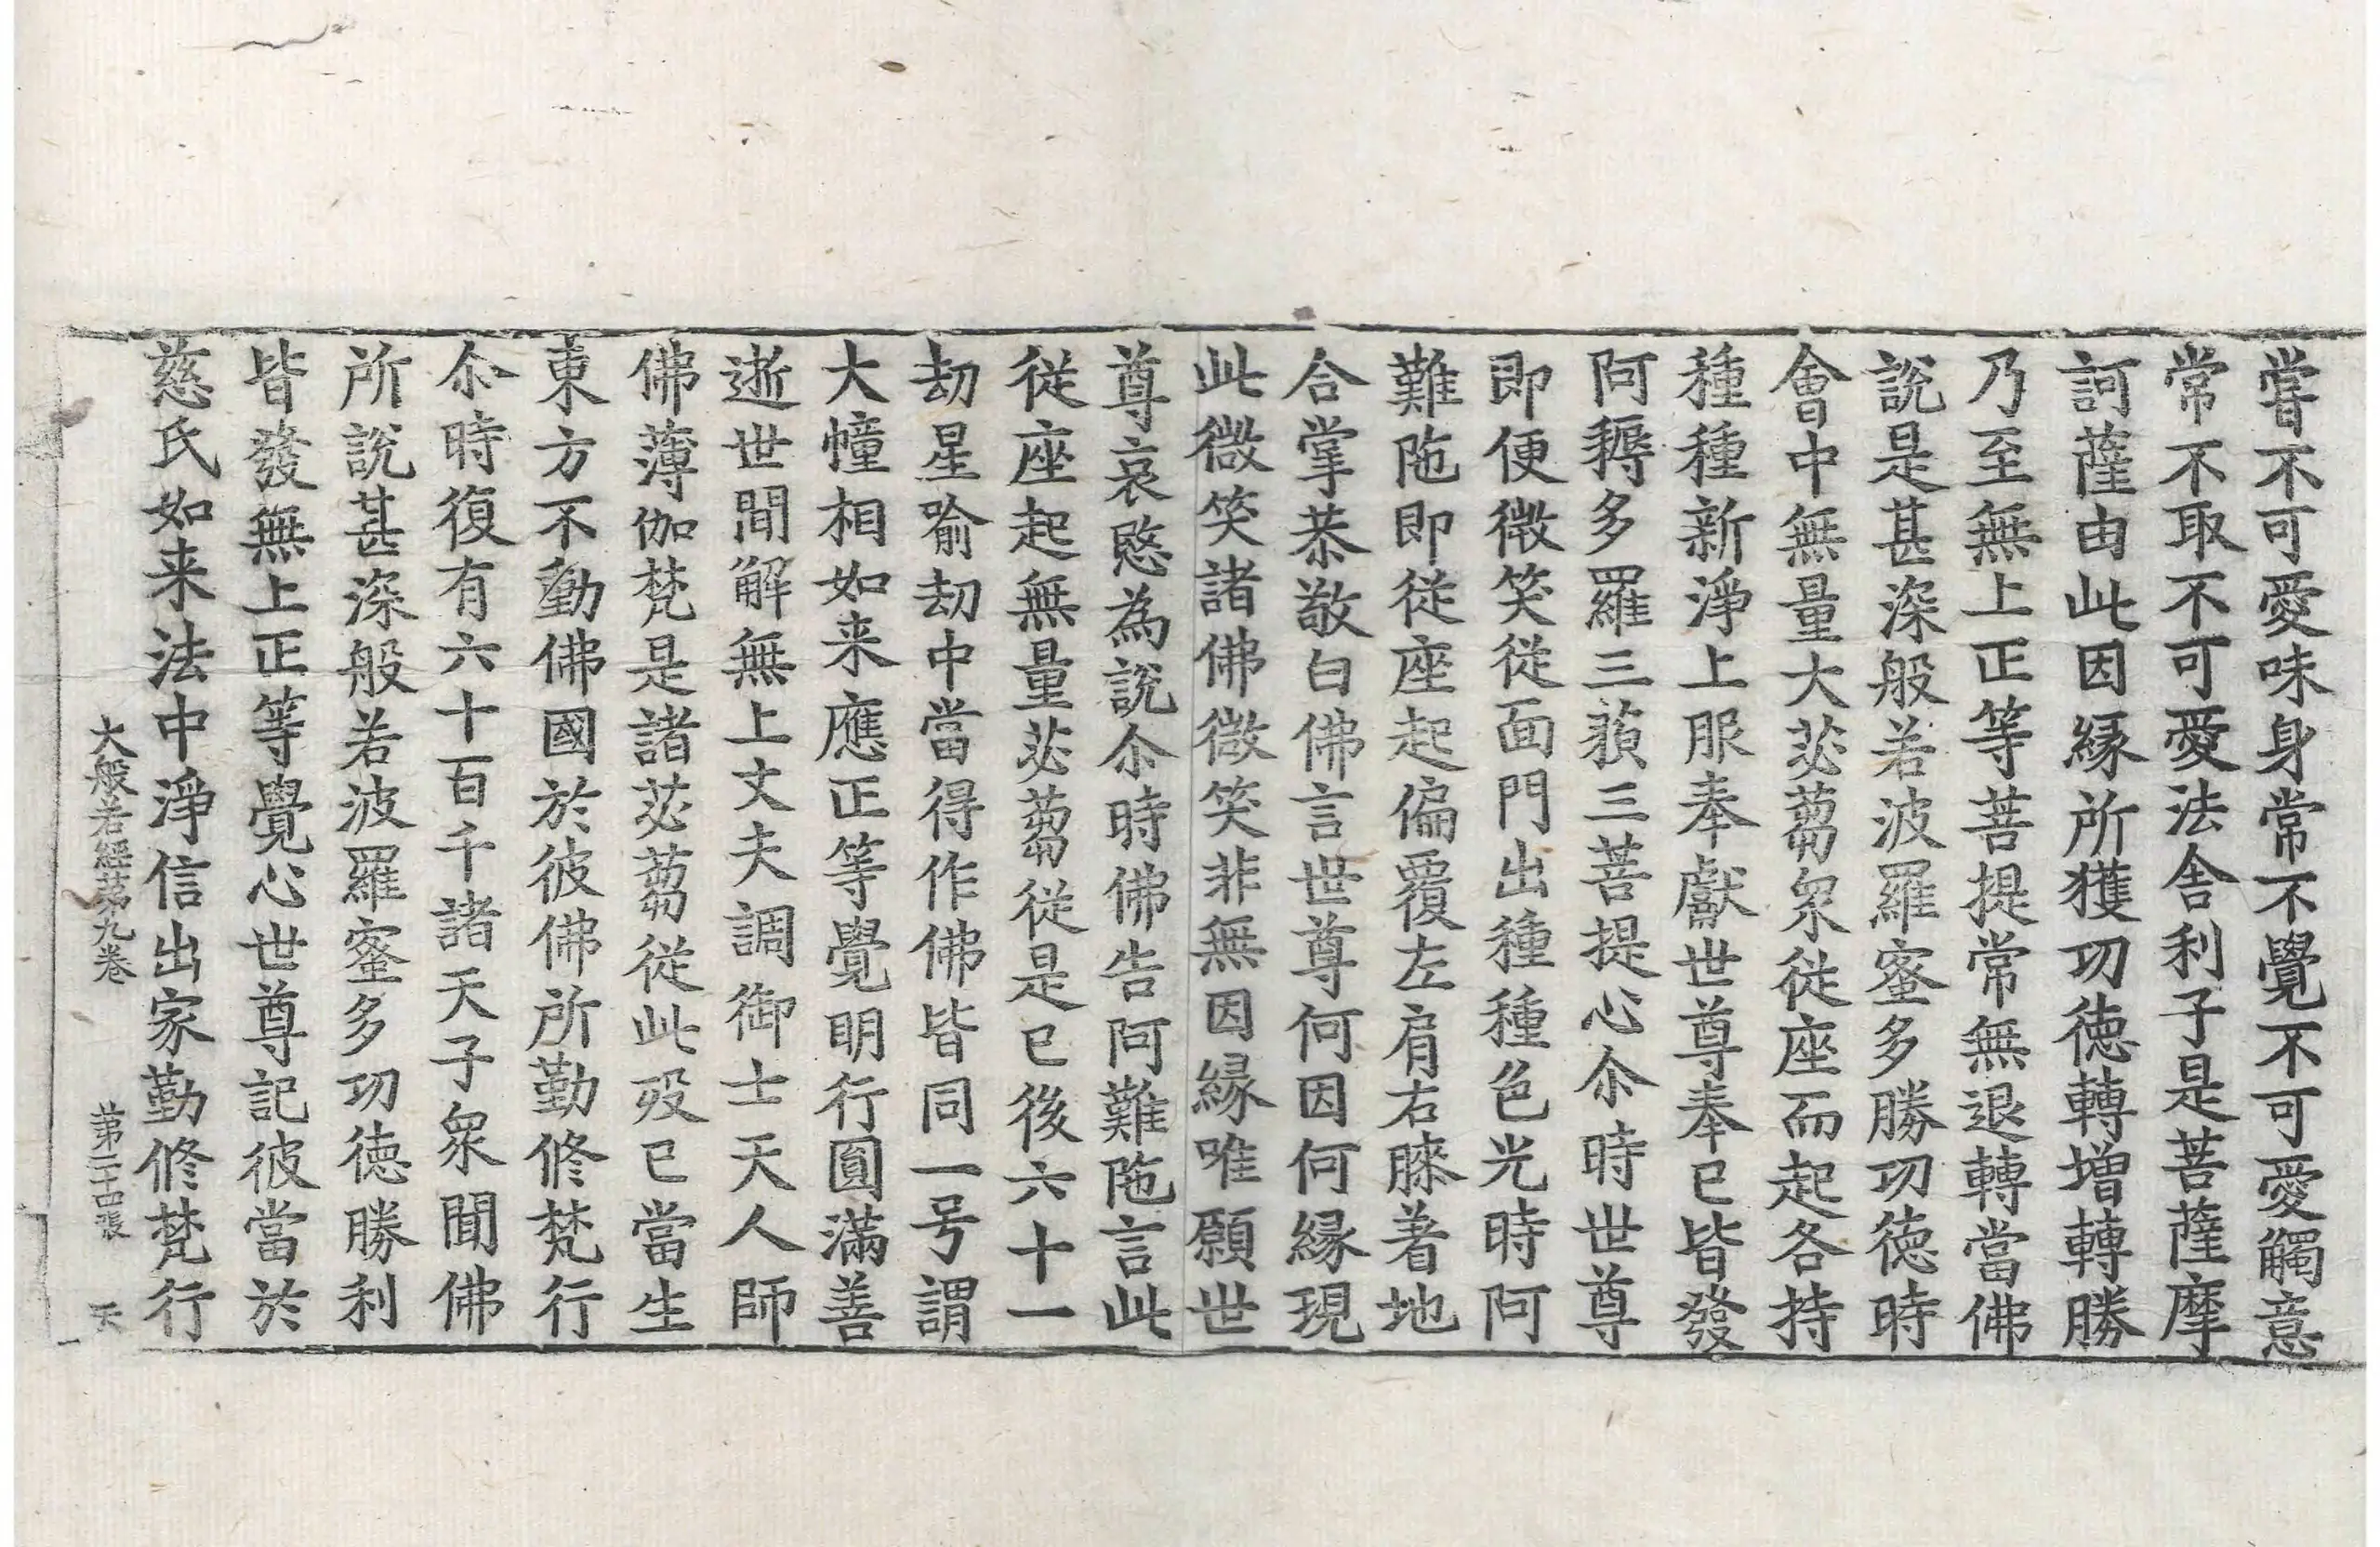 甞不可愛味身常不覺不可愛觸意
常不取不可愛法舍利子是菩薩摩
訶薩由此因縁所獲功徳轉增轉勝
乃至無上正等菩提常無退轉當佛
說是甚深般若波羅蜜多勝功徳時
會中無量大苾蒭衆従座而起各持
種種新淨上服奉獻世尊奉已皆發
阿耨多羅三藐三菩提心尒時世尊
即便微笑従面門出種種色光時阿
難陁即従座起偏覆左肩右膝著地
合掌恭敬白佛言世尊何因何縁現
此微笑諸佛微笑非無因縁唯願世
尊哀愍為說尒時佛告阿難陁言此
従座起無量苾蒭従是已後六十一
劫星喻劫中當得作佛皆同一号謂
大幢相如来應正等覺明行圓滿善
逝世間解無上丈夫調御士天人師
佛薄伽梵是諸苾蒭従此歿已當生
東方不動佛國於彼佛所勤修梵行
尒時復有六十百千諸天子衆聞佛
所說甚深般若波羅蜜多功徳勝利
皆發無上正等覺心世尊記彼當於
慈氏如来法中淨信出家勤修梵行
大般若經苐九卷 苐二十四張 天